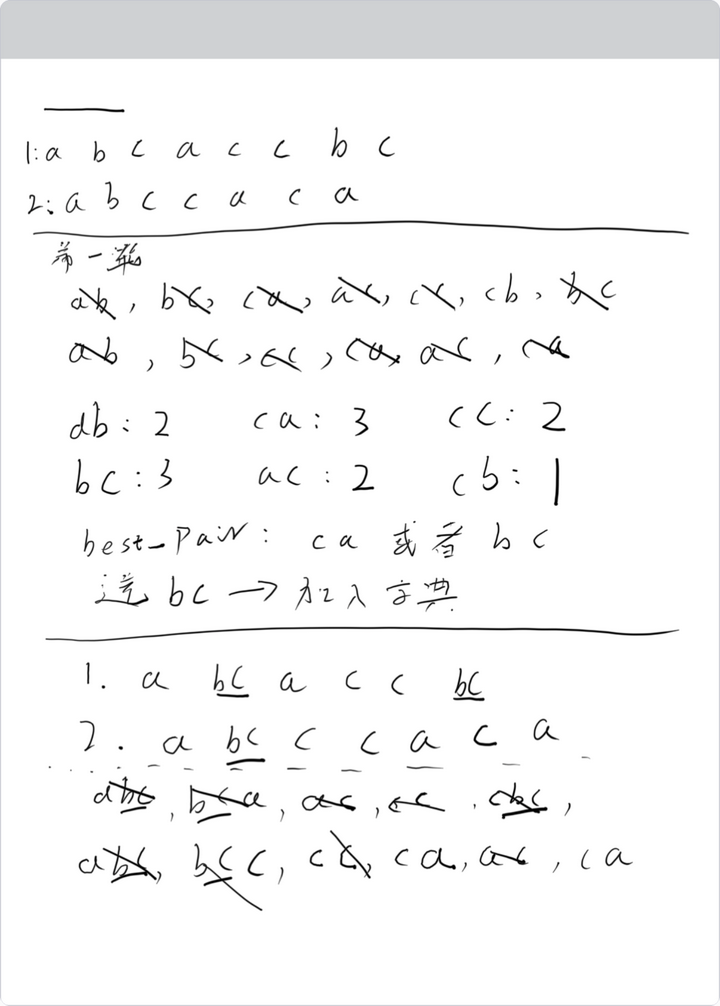 1: a b c a c c b c
2: a b c c a c a
第一輪
ab, bc, ca, ac, cc, cb, bc
ab, bc, cc, ca, ac, ca
ab: 2 ca: 3 cc: 2
bc: 3 ac: 2 cb: 1
best_pair: ca 或者 bc
選 bc → 加入字典
1. a bc a c c bc
2. a bc c c a c a
abc, bca, ac, cc, cbc,
abc, bcc, cc, ca, ac, ca